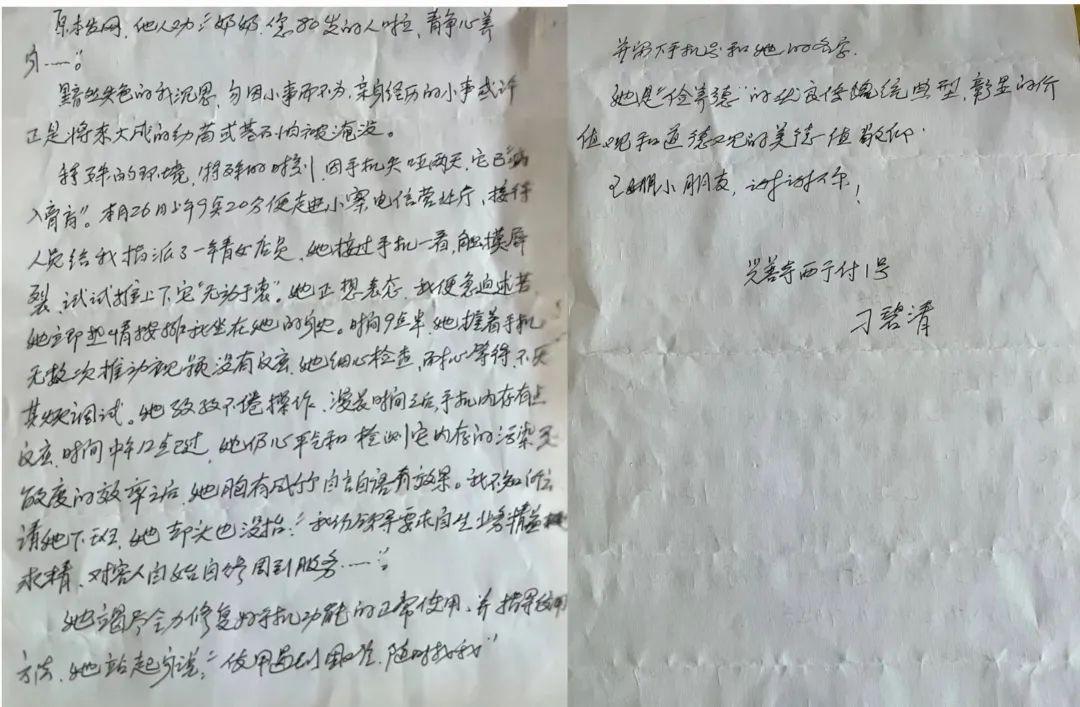 原本发网，他人劝："奶奶，您80岁的人啦，静心养
身……"。
黯然失色的我沉思，勿因小事而不为，亲身经历的小事或许
正是将来大成的幼苗或基石怕被淹没。
特殊的环境，特殊的时刻，因手机失哑两天，它已"病
入膏肓"。本月26日上午9点20分便走进小寨电信营业厅，接待
人员给我指派了一年青女店员，她接过手机一看，触摸屏
裂，试试推上下，它"无动于衷"。她正想表态，我便急迫求苦，
她立即热情按排我坐在她的身边。时间9点半，她握着手机
无数次推动视频没有反应，她细心检查，耐心等待，不厌
其烦调试。她孜孜不倦操作，漫长时间之后，手机内存有点
反应，时间中午12点已过，她仍心平气和检测它内存的污染
敏度的效率之后，她胸有成竹自言自语有效果。我不知何
请她下班，她却头也没抬："我份领导要求自生业务精益
求精，对客人自始自终周到服务……"。
她竭尽全力修复好手机功能的正常使用，并指导使用
方法，她站起身说："使用遇到困难，随时找我"
并留下手机号和她的名字。
她是"俭养德"的优良传统典型，彰显的价
值观和道德观的美德值敬仰。
小朋友，谢谢你！
兴善寺西于付1号
刁碧清